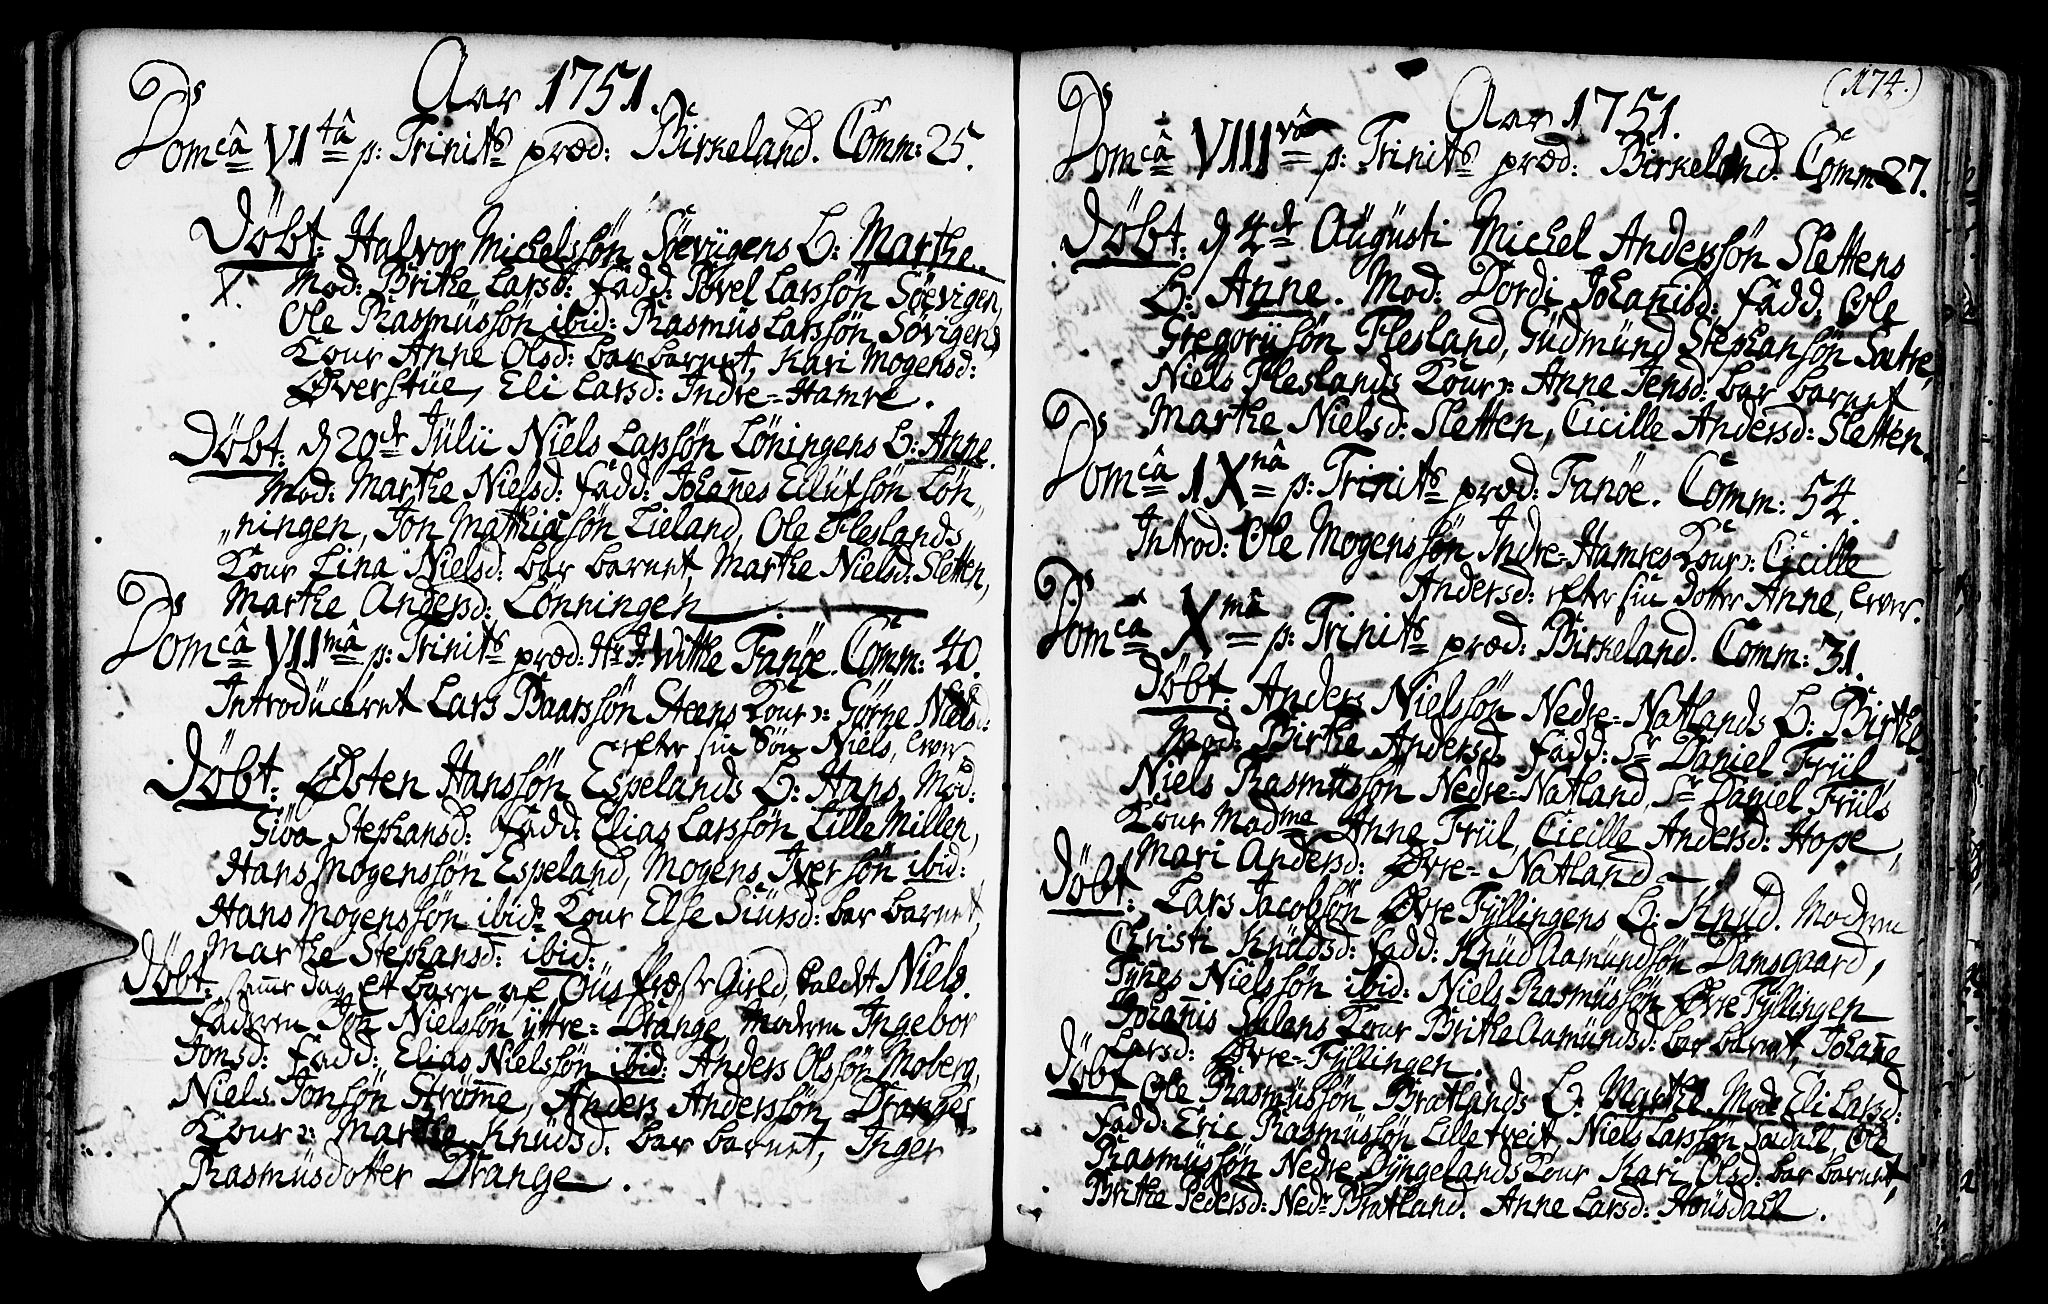 Aar 1751.
Ds
Domcâ VItâ p: Trinits præd: Birkeland. Comm: 25.
Döbt: Halvor Michelssön Söevigens B: Marthe.
X. Mod: Brithe Larsd: Fadd: Povel Larssön Söevigen,
Ole Rasmüssön ibid: Rasmüs Larssön Sövigens
Kour Anne Olsd: bar barnet, Kari Mogensd:
Øverstüe, Eli Larsd: Indre-Hamre.
Döbt: d 20de Jülii Niels Larssön Löningens B: Anne.
Mod: Marthe Nielsd: Fadd: Johanes Eilüfsön Lön„
„ningen, Jon Mathiasön Lieland, Ole Fleslands
Kour Lina Nielsd: bar barnet, Marthe Nielsd: Sletten,
Marthe Andersd: Lönningen
Ds
Domcâ VIImâ p: Trinits præd: Hr J: Withe Fanöe. Comm: 40.
Introdüceret Lars Baarssön Steens Kour: Görne Nielsd:
efter sin Sön Niels,
Döbt: Østen Hanssön Espelands B: Hans, Mod:
Giöa Stephansd: Fadd: Elias Larssön Lille Millen,
Hans Mogenssön Espeland, Mogens Iversön ibid:
Hans Mogenssön ibid: Kour Else Siürsd: bar barnet,
Marthe Stephansd: ibid:
Döbt: samme dag et barn af Öüs Præste Gield, kaldet Niels.
Faderen Joh Nielssön yttre-Drange, Moderen Ingebor
Jonsd: Fadd: Elias Nielssön ibid: Anders Olssön Moberg,
Niels Jonsön Strøme, Anders Anderssön Dranges
Kour: Marthe Knüdsd: bar barnet, Inger
Rasmüsdotter Drange.
X
(174.)
Aar 1751.
Ds
Domcâ VIIIvâ p: Trinits præd: Birkeland. Comm 27.
Döbt: d 4de Augüsti Michel Anderssön Slettens
B: Anne. Mod: Dordi Johanisd: Fadd: Ole
Gregoriisön Flesland, Güdmünd Stephansön Sætre,
Niels Fleslands Kour: Anne Jensd: bar barnet
Marthe Nielsd: Sletten, Cicille Andersd: Sletten.
Ds
Domcâ IXnâ p: Trinits præd: Fanöe. Comm: 54.
Introd: Ole Mogenssön Indre-Hamres Kour: Cicille
Andersd: efter sin dotter Anne,
Ds
Domcâ Xmâ p: Trinits præd: Birkeland. Comm: 31.
Döbt: Anders Nielssön Nedre-Natlands B: Birthe.
Mod: Birthe Andersd. Fadd: Sr Daniel Frül,
Niels Rasmüssön Nedre-Natland, Sr Daniel Früls
Kour Madme Anne Frül, Cicille Andersd: Hope,
Mari Andersd: Øvre-Natland
Döbt: Lars Jacobsön Øvre Fÿllingens B: Knüd. Moderen
Christi Knüdsd: Fadd: Knüd Aamündsön Damsgaard,
Tÿnes Nielssön ibid: Niels Rasmüssön Øvre Fÿllingen
Johanis Sælens Kour Brithe Aamündsd: bar barnet, Johane
Larsd: Øvre-Fÿllingen.
Döbt Ole Rasmüssön Bratlands B: Marthe. Mod: Eli Larsd:
Fadd: Eric Rasmüssön Lilletveit, Niels Larssön Sædall, Ole
Rasmüssön Nedre Dÿngelands Kour Kari Olsd: bar barnet,
Brithe Pedersd: Nedr Bratland. Anne Larsd: Höüsdall.